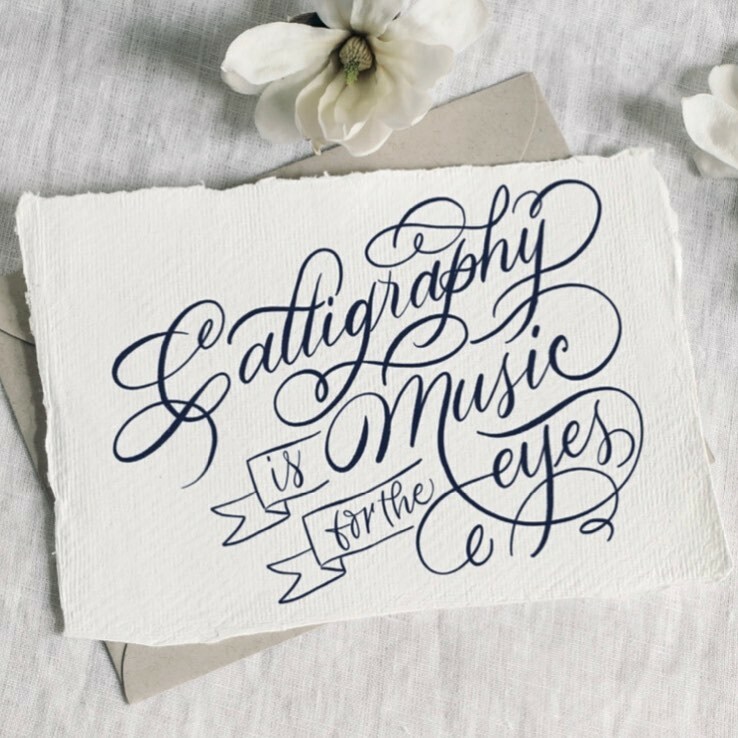 Calligraphy
is Music
for the eyes